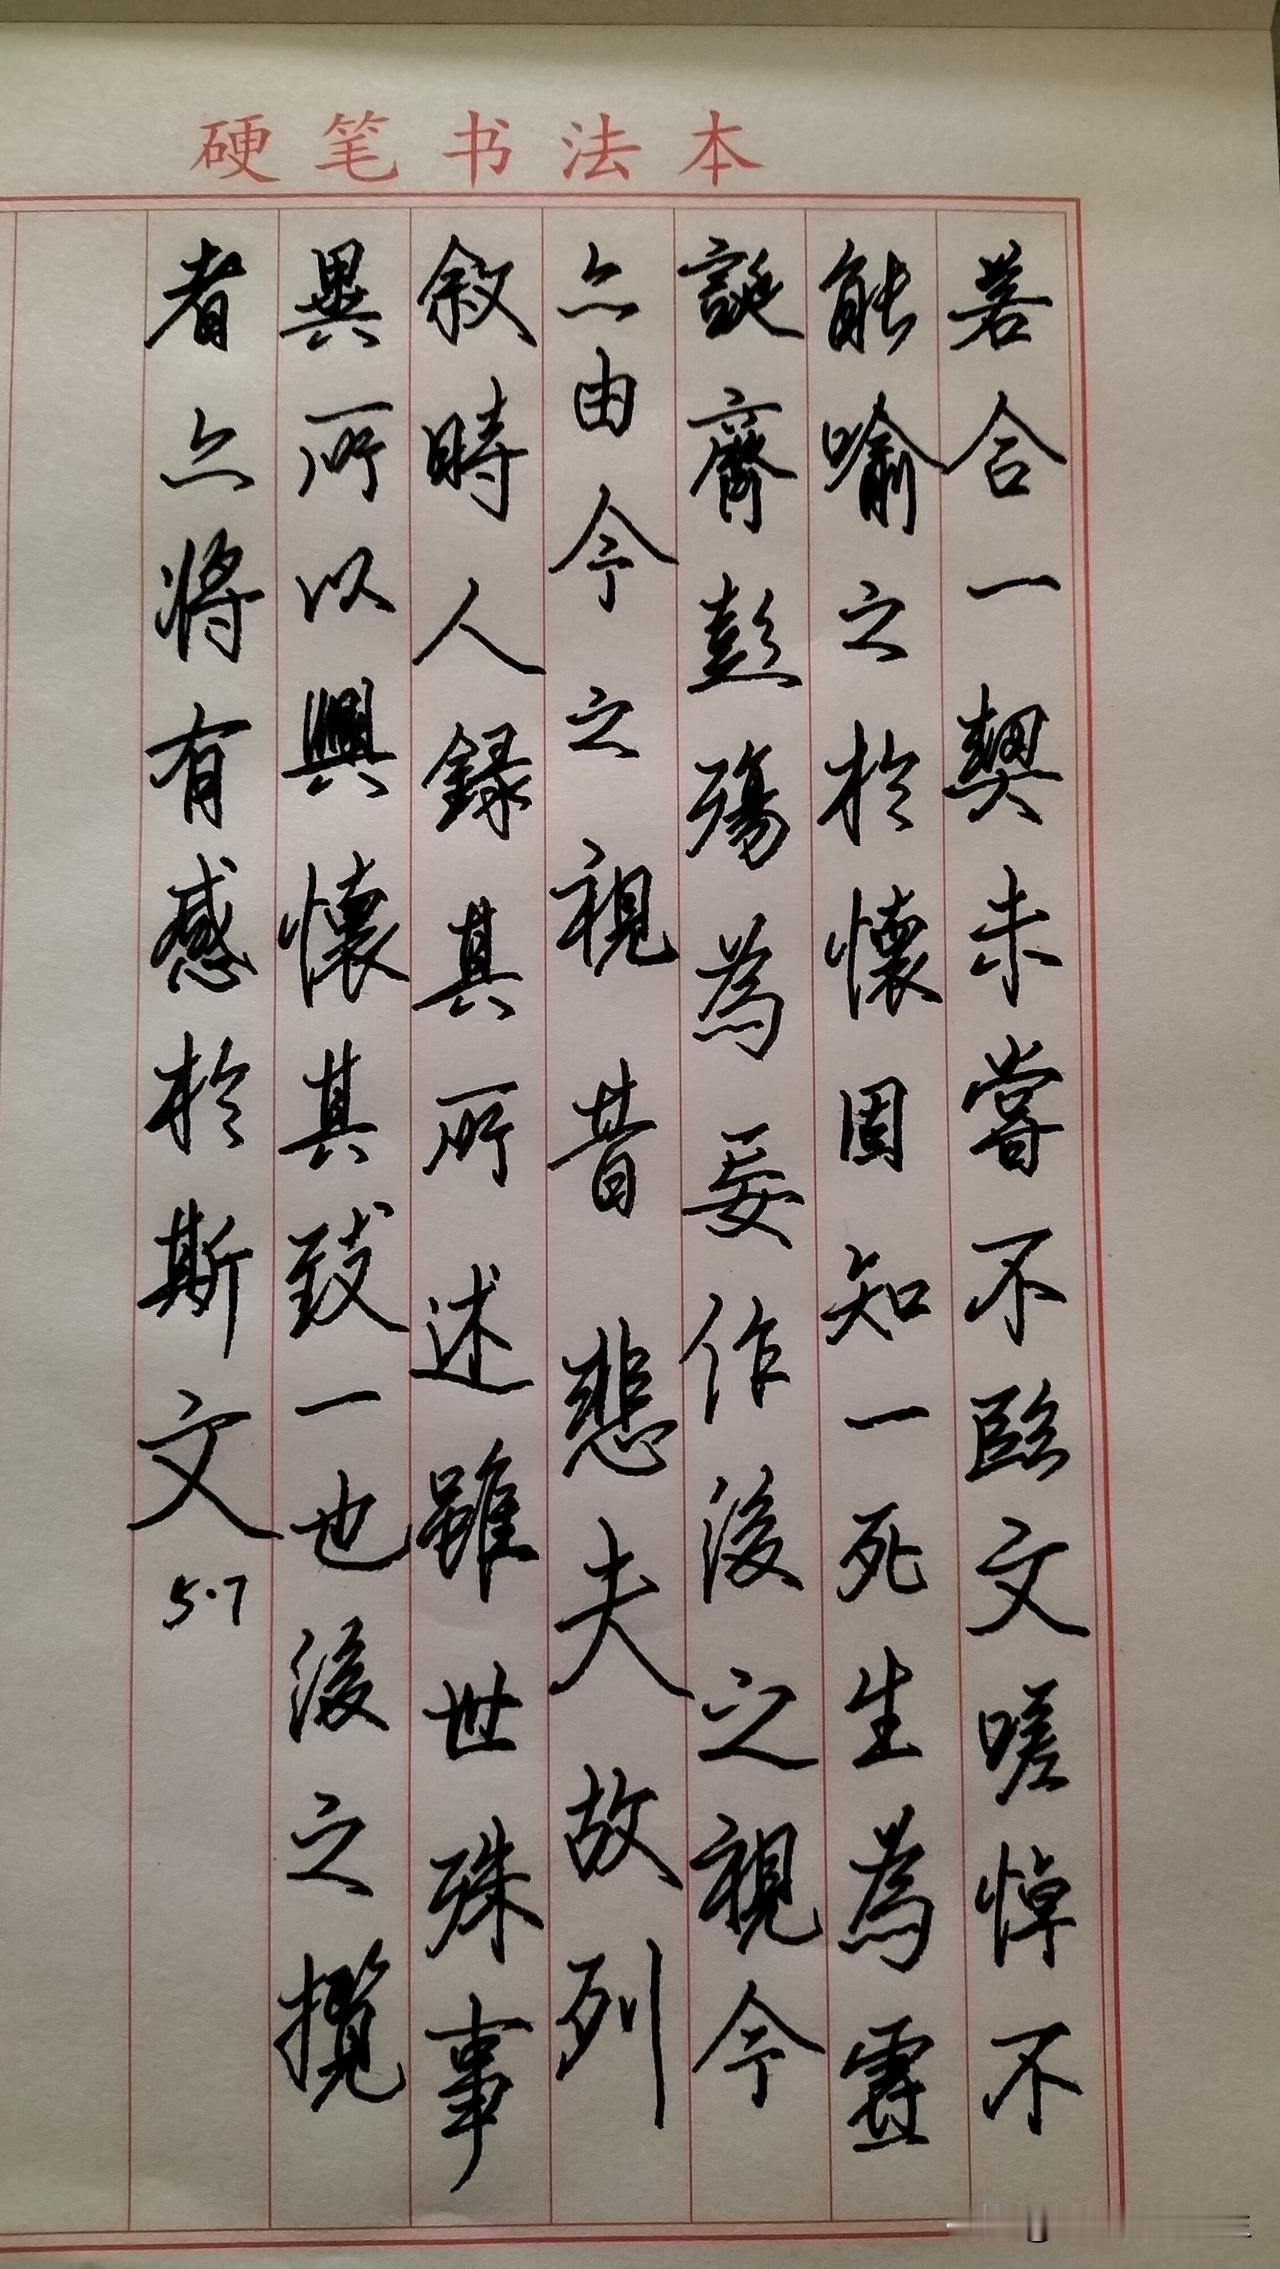 硬笔书法本
若合一契未嘗不臨文嗟悼不
能喻之於懷固知一死生為虛
誕齊彭殤為妄作後之視今
亦由今之視昔悲夫故列
敘時人錄其所述雖世殊事
異所以興懷其致一也後之攬
者亦將有感於斯文
5.7